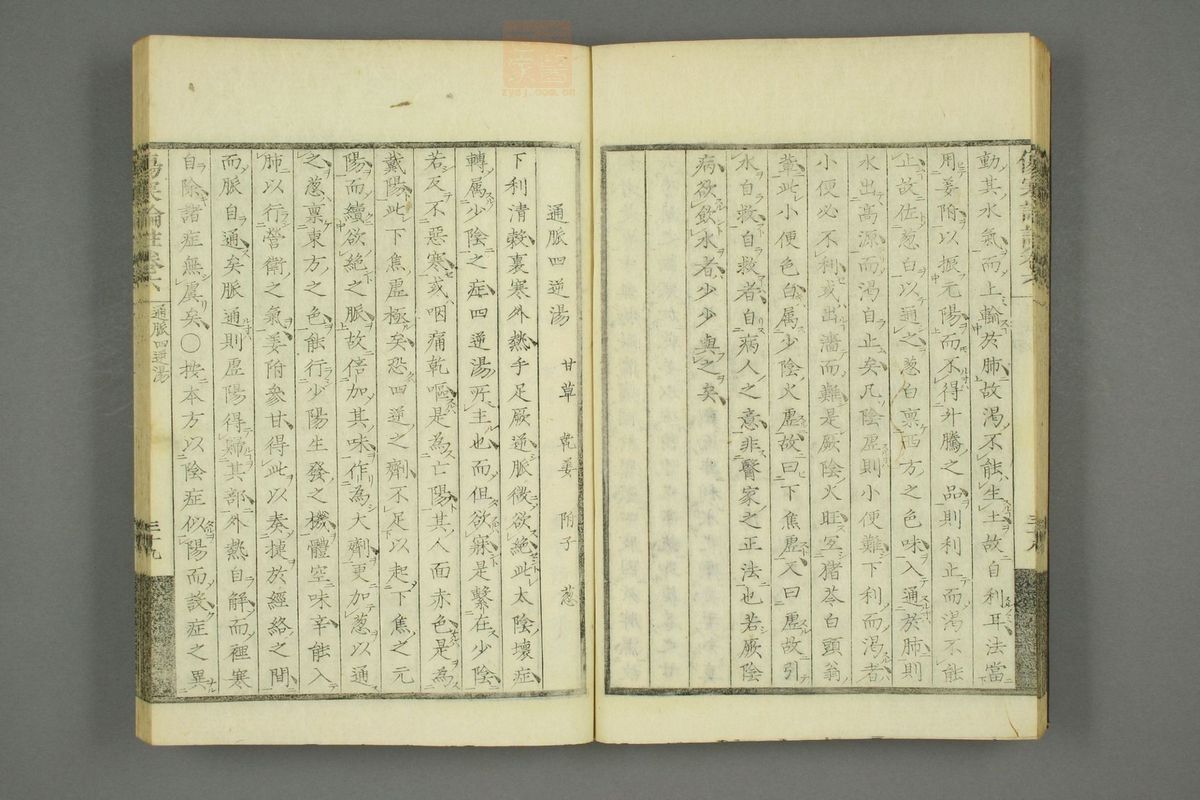 動其水氣而上輸於肺故渴不能生土故自利耳法當
用薑附以振元陽而不得升騰之品則利止而渴不能
止故佐葱白以通之葱白禀西方之色味入通於肺則
水出高源而渴自止矣凡陰虛則小便難下利而渴者
小便必不利或出濇而難是厥陰火旺宜猪苓白頭翁
軰此小便色白属少陰火虛故曰下焦虛又曰虛故引
水自救自救者自病人之意非醫家之正法也若厥陰
病欲飲水者少少與之矣
通脈四逆湯
甘草 乾姜 附子 葱
下利清穀裏寒外熱手足厥逆脈微欲絶此太陰壞症
轉属少陰之症四逆湯所主也而但欲寐是繫在少陰
若反不惡寒或咽痛乾嘔是為亡陽其人面赤色是為
戴陽此下焦虛極矣恐四逆之劑不足以起下焦之元
陽而續欲絶之脈故倍加其味作為大劑更加葱以通
之葱禀東方之色能行少陽生發之機體空味辛能入
肺以行營衛之氣姜附參甘得此以奏捷於經絡之間
而脈自通矣脈通則虛陽得歸其部外熱自解而裡寒
自除諸症無虞矣○按本方以陰症似陽而設症之異
傷寒論註卷六
通脈四逆湯
三十九